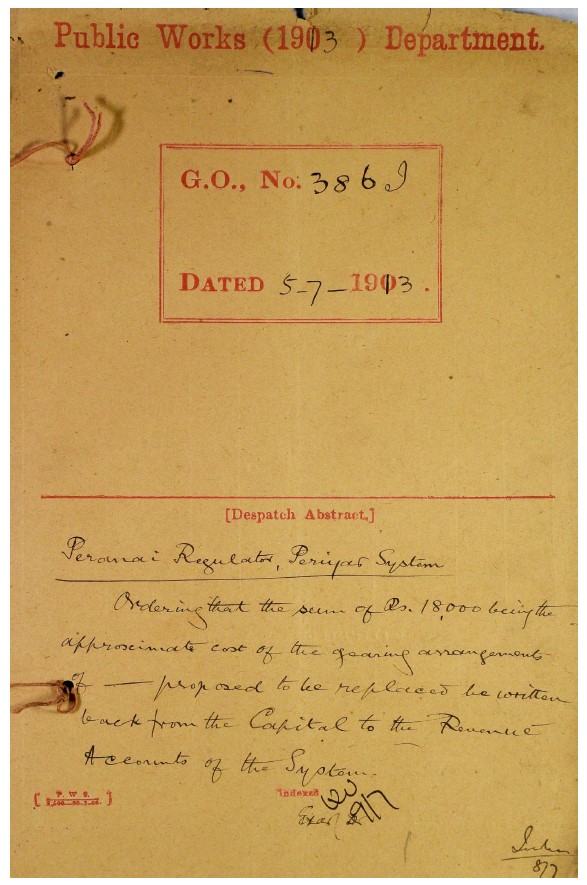 Public Works (1913) Department.
G.O., No. 386 I
DATED 5-7-1913.
[Despatch Abstract.]
Peranai Regulator, Periyar System
Ordering that the sum of Rs. 18,000 being the
approximate cost of the gearing arrangements
of — proposed to be replaced be written
back from the Capital to the Revenue
Accounts of the System.
P. W. S.
Indexed
9/7
8/7